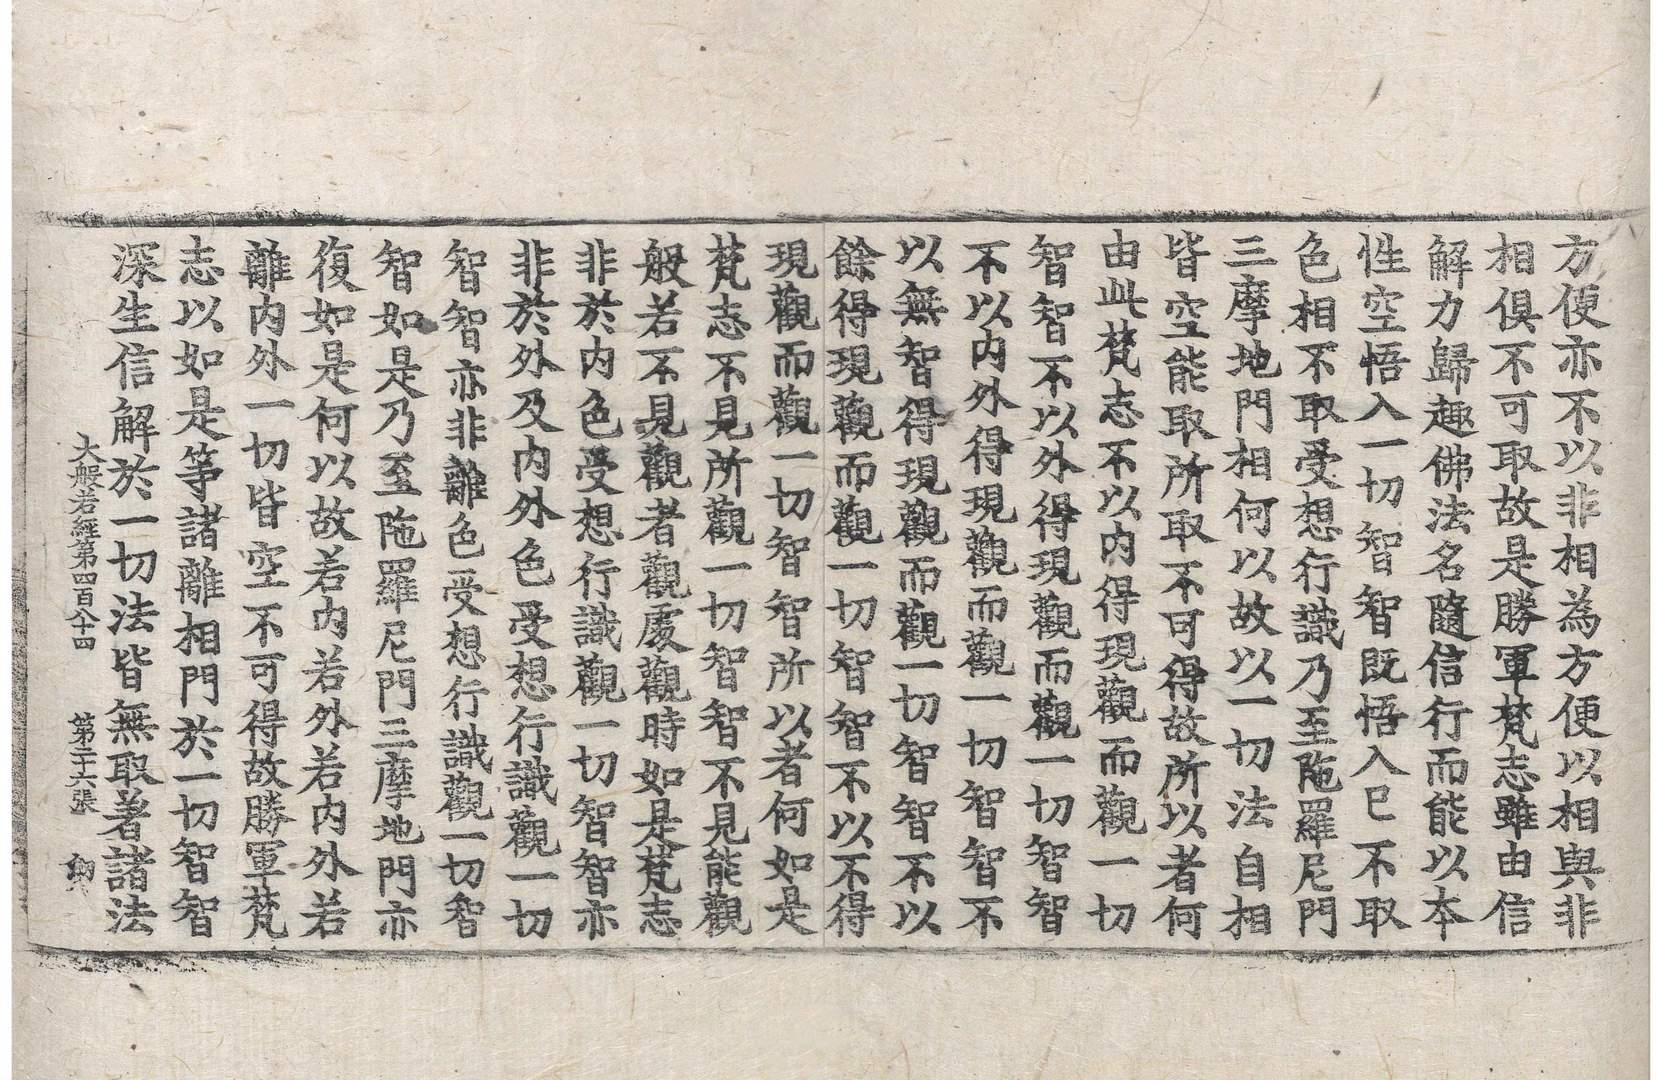 方便亦不以非相為方便以相與非
相俱不可取故是勝軍梵志雖由信
解力歸趣佛法名隨信行而能以本
性空悟入一切智智既悟入已不取
色相不取受想行識乃至陁羅尼門
三摩地門相何以故以一切法自相
皆空能取所取不可得故所以者何
由此梵志不以内得現觀而觀一切
智智不以外得現觀而觀一切智智
不以内外得現觀而觀一切智智不
以無智得現觀而觀一切智智不以
餘得現觀而觀一切智智不以不得
現觀而觀一切智智所以者何如是
梵志不見所觀一切智智不見能觀
般若不見觀者觀處觀時如是梵志
非於内色受想行識觀一切智智亦
非於外及内外色受想行識觀一切
智智亦非離色受想行識觀一切智
智如是乃至陁羅尼門三摩地門亦
復如是何以故若内若外若内外若
離内外一切皆空不可得故勝軍梵
志以如是等諸離相門於一切智智
深生信解於一切法皆無取著諸法
大般若經第四百八十四 第二十六張